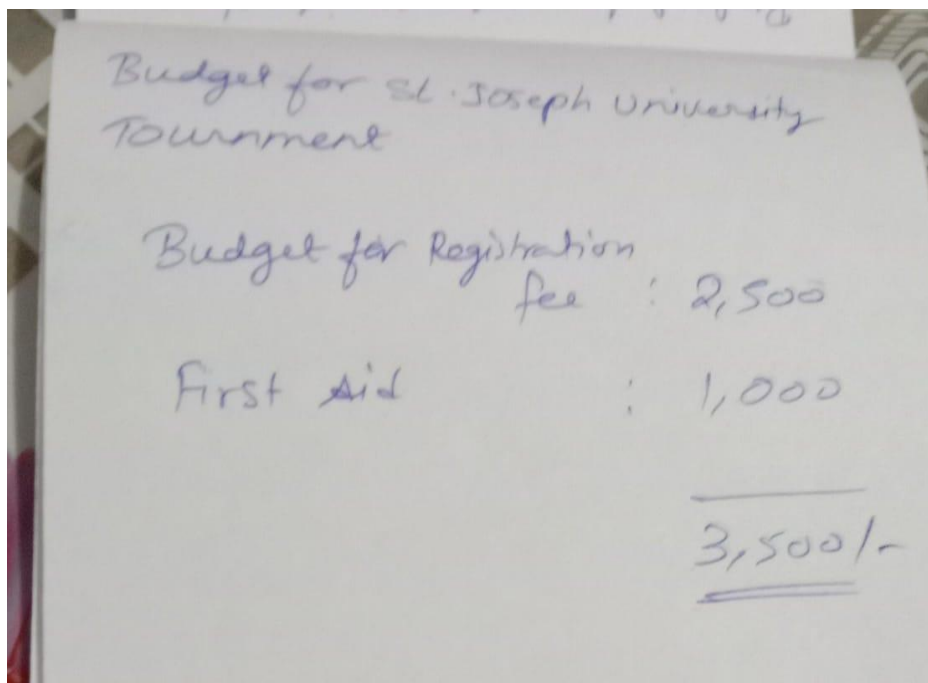 Budget for St. Joseph University
Tournment
Budget for Registration
fee : 2,500
First Aid : 1,000
3,500/-